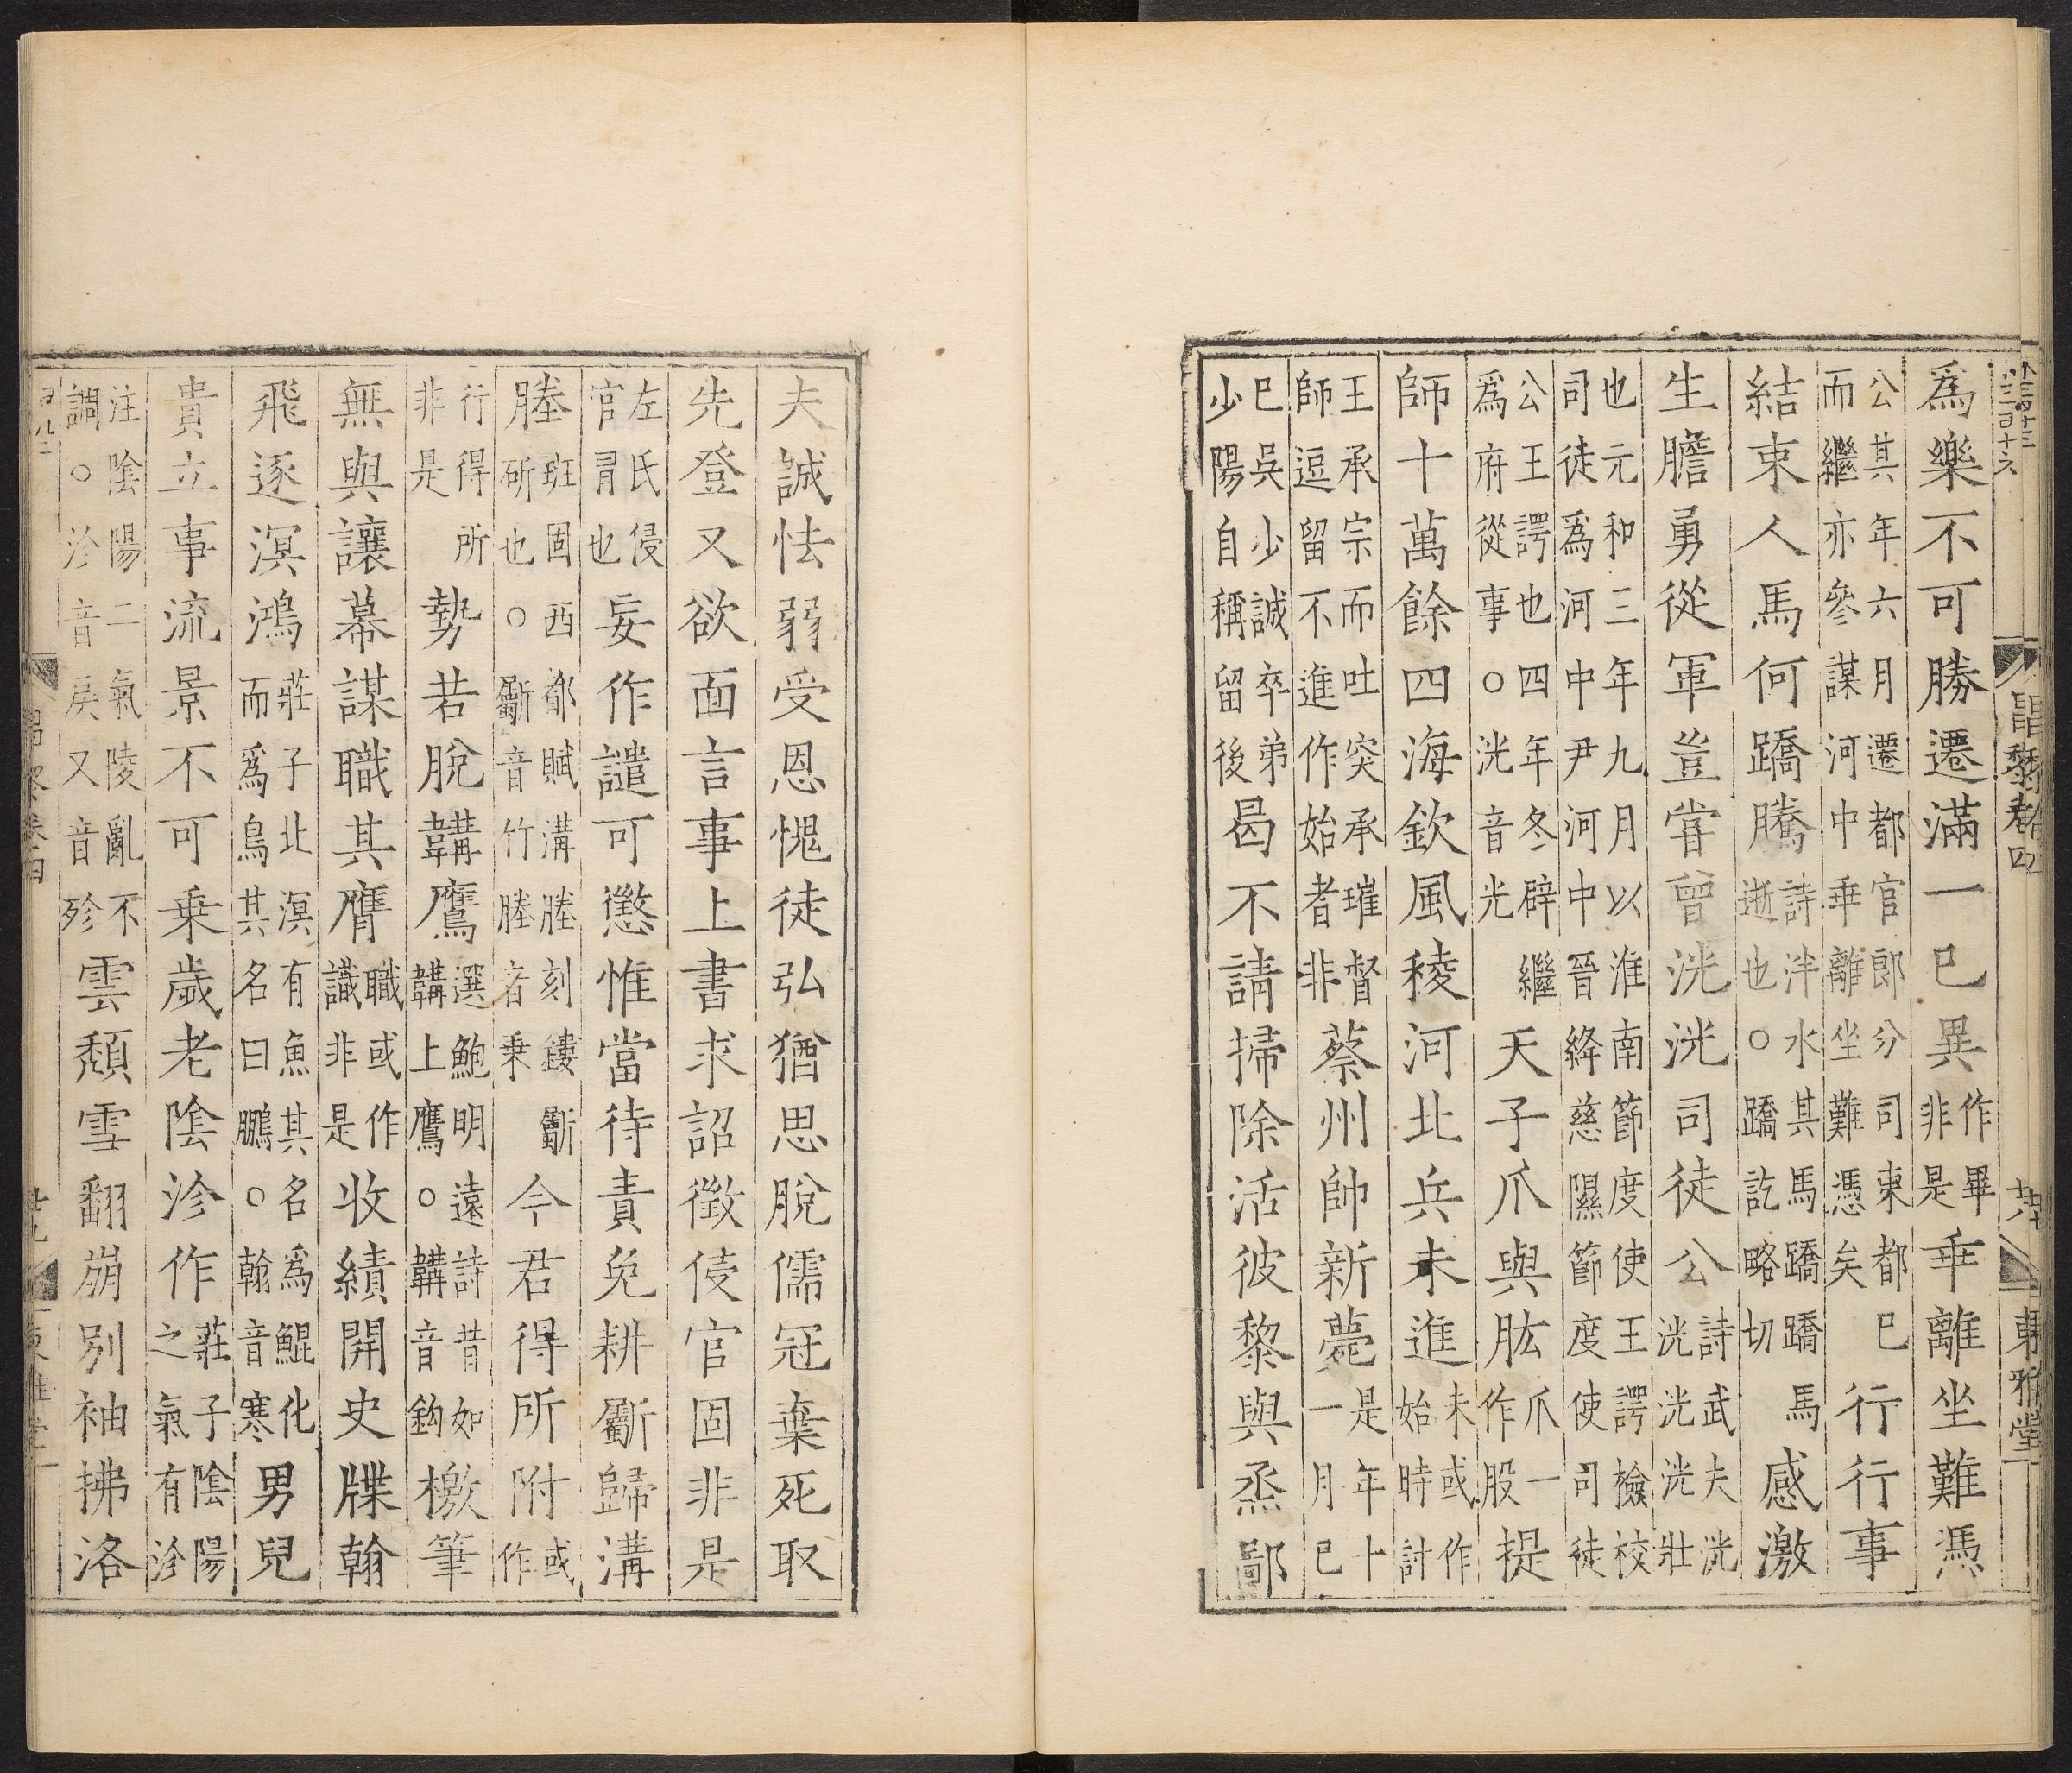 為樂不可勝遷滿一已異作畢非是垂離坐難馮
公其年六月遷都官郎分司東都已而繼亦參謀河中垂離坐難憑矣行行事
結束人馬何蹻騰詩泮水其馬蹻蹻馬逝也○蹻訖略切感激
生膽勇從軍豈甞曾洸洸司徒公詩武夫洸洸洸洸壯
也元和三年九月以淮南節度使王諤檢校司徒為河中尹河中晉絳慈隰節度使司徒
公王諤也四年冬辟繼為府從事○洸音光天子爪與肱爪一作股提
師十萬餘四海欽風稜河北兵未進未或作始時計
王承宗而吐突承璀督師逗留不進作始者非蔡州帥新薨是年十一月已
巳吳少誠卒弟少陽自稱留後曷不請掃除活彼黎與烝鄙
東雅堂
夫誠怯弱受恩愧徒弘猶思脫儒冠棄死取
先登又欲面言事上書求詔徵侵官固非是
左氏侵官冒也妄作譴可懲惟當待責免耕斸歸溝
塍班固西都賦溝塍刻鏤斸斫也○斸音竹塍音乗今君得所附或作
行得所非是勢若脫鞲鷹選鮑明遠詩昔如鞲上鷹○鞲音鈎檄筆
無與讓幕謀職其膺職或作識非是收績開史牒翰
飛逐溟鴻莊子北溟有魚其名為鯤化而為鳥其名曰鵬○翰音寒男兒
貴立事流景不可乗歲老陰沴作莊子陰陽之氣有沴
注陰陽二氣陵亂不調○沴音戾又音殄雲頹雪翻崩別袖拂洛